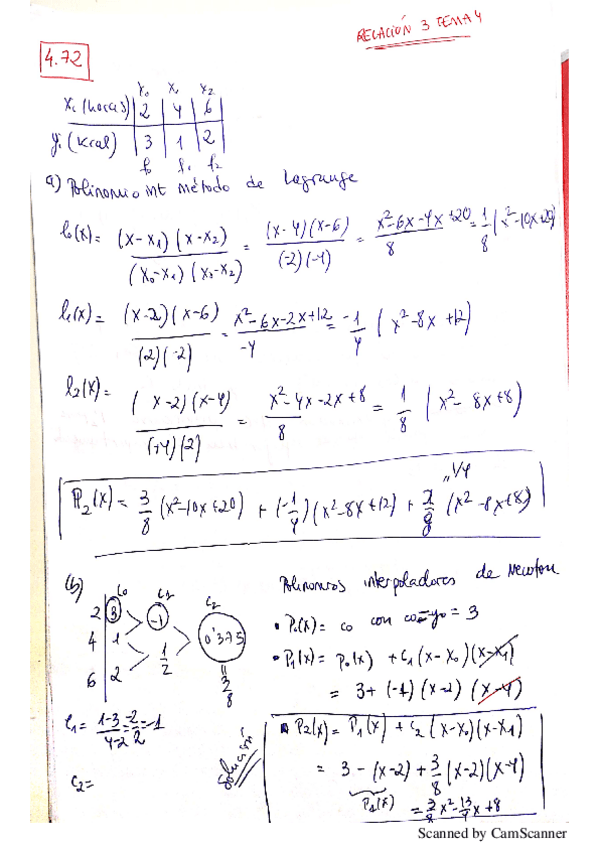 RELACIÓN 3 TEMA 4
4.72
x₀ x₁ x₂
xᵢ (horas) | 2 | 4 | 6
yᵢ (kcal) | 3 | 1 | 2
f₀ f₁ f₂
a) Polinomio int método de Lagrange
l₀(x) = (x-x₁)(x-x₂) / (x₀-x₁)(x₀-x₂) = (x-4)(x-6) / (-2)(-4) = x²-6x-4x+20 / 8 = 1/8 (x²-10x+20)
l₁(x) = (x-2)(x-6) / (2)(-2) = x²-6x-2x+12 / -4 = -1/4 (x²-8x+12)
l₂(x) = (x-2)(x-4) / (+4)(2) = x²-4x-2x+8 / 8 = 1/8 (x²-8x+8)
"1/4
P₂(x) = 3/8 (x²-10x+20) + (-1/4)(x²-8x+12) + 2/8 (x²-8x+8)
(b) Polinomios interpoladores de Newton
c₀ c₁ c₂
2 | 3 -1 0'375
4 | 1 1/2 = 3/8
6 | 2
• P₀(x) = c₀ con c₀=y₀ = 3
• P₁(x) = P₀(x) + c₁(x-x₀)(x-x₁)
= 3+(-1)(x-2)(x-4)
c₁ = 1-3 / 4-2 = -2/2 = -1
c₂ =
Solución
P₂(x) = P₁(x) + c₂(x-x₀)(x-x₁)
= 3-(x-2)+3/8 (x-2)(x-4)
P₁(x) = 3/8 x² - 13/4 x + 8
Scanned by CamScanner